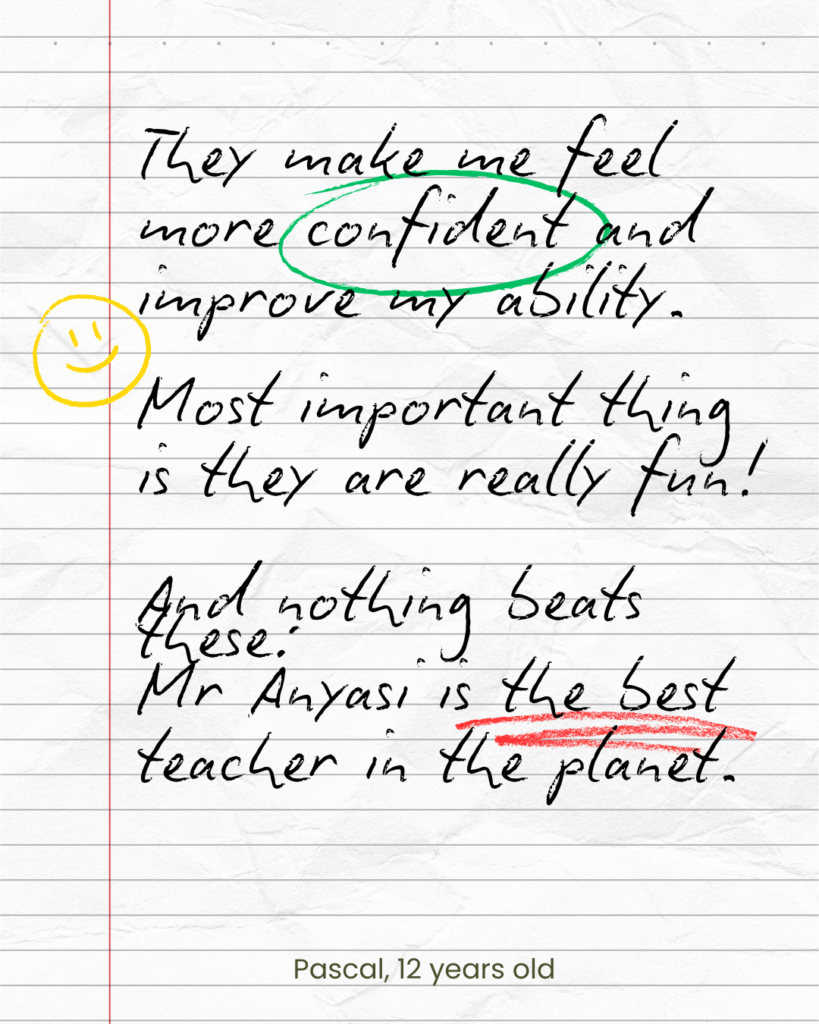 They make me feel
more confident and
improve my ability.
Most important thing
is they are really fun!
And nothing beats
these:
Mr Anyasi is the best
teacher in the planet.
Pascal, 12 years old